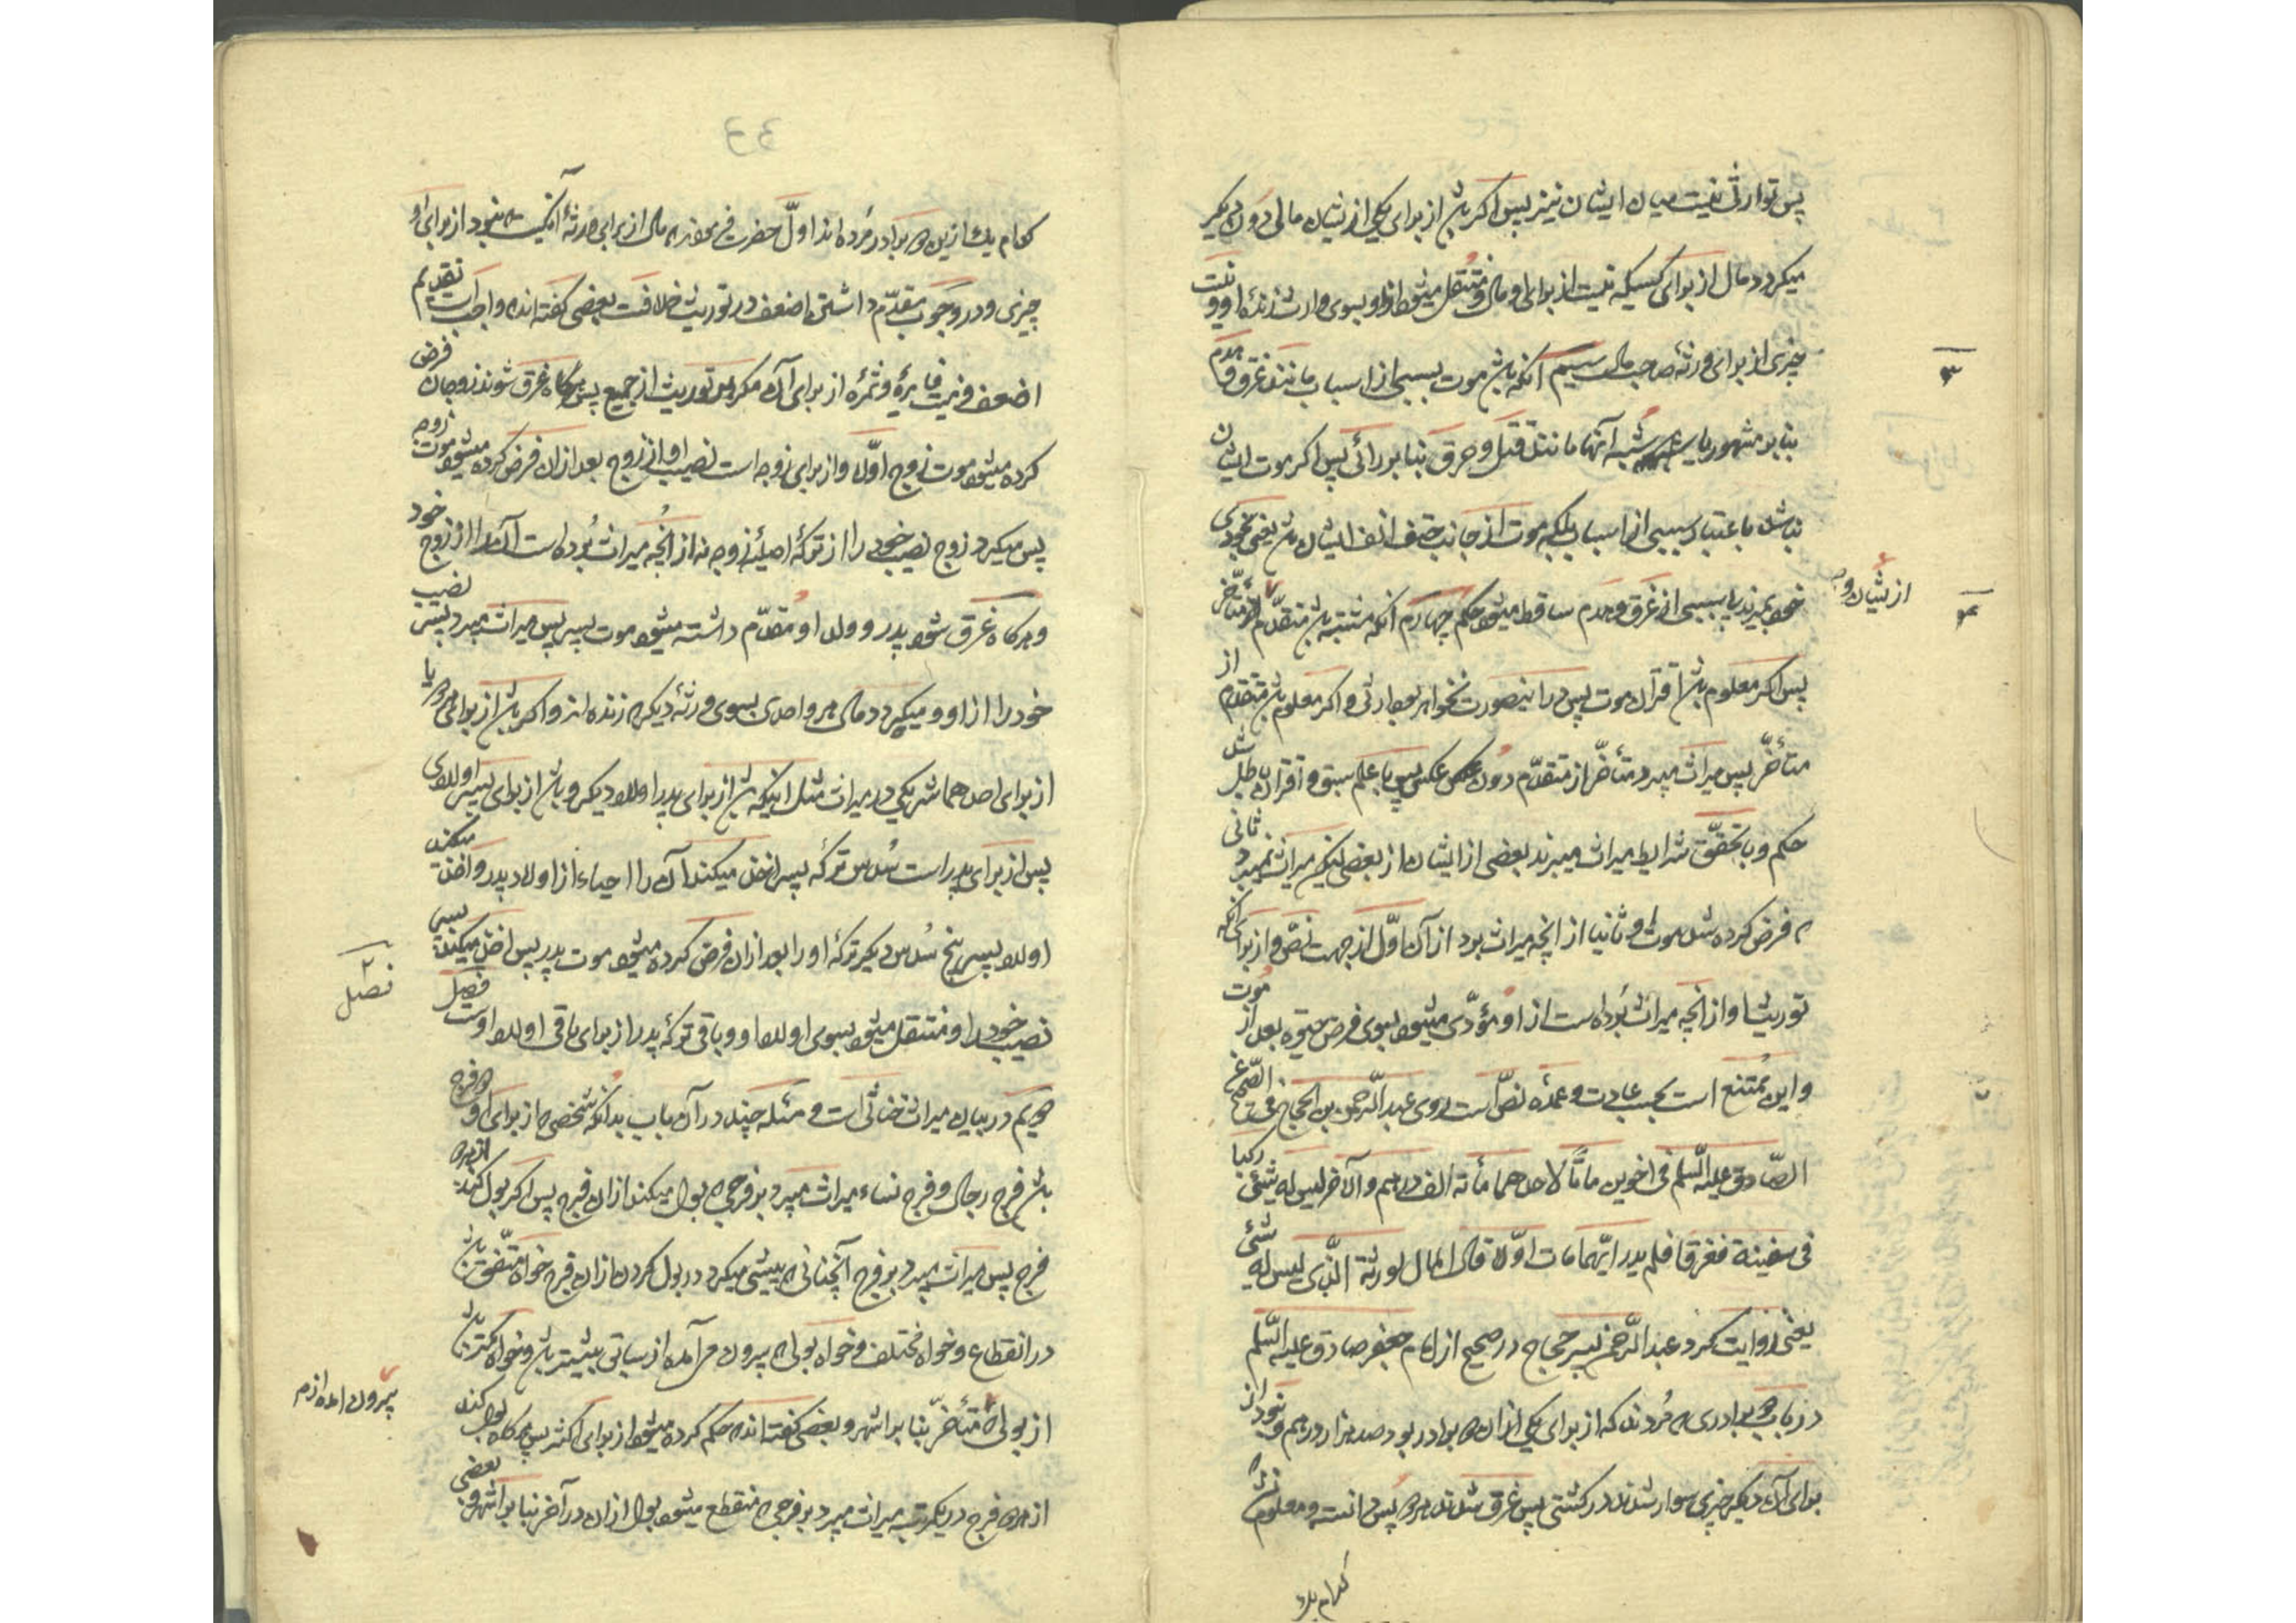 پس توارثی نیست میان ایشان نیز پس اکر باشد از برای یکی از ایشان مالی دون دیکر
میکردد مال از برای کسیکه نیست از برای او مال و منتقل میشود از او بسوی وارث زنده او و نیست
چیزی از برای ورثهٔ صاحب مال سیم آنکه باشد موت بسببی از اسباب مانند غرق و هدم
بنا بر مشهور یا شبه آنها مانند قتل و حرق بنا بر رائی پس اکر موت ایشان
نباشد باعتبار سببی از اسباب بلکه موت از جانب حتف انف ایشان باشد یعنی بخودی
خود بمیرند یا بسببی از غرق و هدم ساقط میشود حکم چهارم آنکه مشتبه باشد متقدم متأخر
از ایشان و
۳
۴
پس اکر معلوم باشد اقتران موت پس در اینصورت نخواهد بود ارثی و اکر معلوم باشد متقدم از
متأخّر پس میراث میبرد متأخّر از متقدّم دون عکس پس با علم سبق و اقتران باطل شد
حکم و با تحقّق شرایط میراث میبرند بعضی از ایشان از بعضی لیکن میراث نمیبرد ثانی
که فرض کرده شد موت او ثانیا از انچه میراث برد از آن اوّل از جهت نصّ و از برای آنکه
توریث او از انچه میراث برده است از او مؤدّی میشود بسوی فرض حیوة بعد از موت
و این ممتنع است بحسب عادت و عمده نصّ است روی عبد الرّحمن بن الحجّاج فی الصّحیح عن
الصّادق علیه السّلم فی اخوین ماتا لاحدهما مأئة الف درهم و الآخر لیس له شیئی رکبا
فی سفینة فغرقا فلم یدر ایّهما مات اوّلا قال المال لورثة الّذی لیس له شئی
یعنی روایت کرد عبد الرّحمن پسر حجاج در صحیح از امام جعفر صادق علیه السّلم
در باب دو برادری که مُردند که از برای یکی از ان دو برادر بود صد هزار درهم و نبود از
برای آن دیکر چیزی سوار شدند در کشتی پس غرق شدند هر دو پس دانسته و معلوم نشد که
کدام یک
کدام یک ازین دو برادر مرده اند اوّل حضرت فرمودند که مال از برای ورثهٔ آنکسیست که نبود از برای او
چیزی و در وجوب مقدّم داشتن اضعف در توریث خلافست بعضی کفته اند که واجب است تقدیم
اضعف و نیست فایدهٔ و ثمرهٔ از برای آن مکر در توریث از جمیع پس هرکاه غرق شوند زوجان فرض
کرده میشود موت زوج اوّلا و از برای زوجه است نصیب او از زوج بعد از ان فرض کرده میشود موت زوجه
پس میکیرد زوج نصیب خود را از ترکهٔ اصلیهٔ زوجه نه از انچه میراث برده است آن را از زوج خود
و هرکاه غرق شود پدر و ولد او مقدّم داشته میشود موت پسر پس میراث میبرد پدر نصیب
خود را از او و میکردد مال هر واحدی بسوی ورثهٔ دیکر که زنده اند و اکر باشد از برای هر دو یا
از برای احدهما شریکی در میراث مثل اینکه باشد از برای پدر اولاد دیکر و باشد از برای پسر اولادی
پس از برای پدر است سُدس ترکه پسر اخذ میکند آن را احیاء از اولاد پدر و اخذ میکند
اولاد پسر پنج سُدس دیکر ترکهٔ او را بعد از ان فرض کرده میشود موت پدر پس اخذ میکند پسر
نصیب خود را و منتقل میشود بسوی اولاد او و باقی ترکهٔ پدر از برای باقی اولاد اوست فصل
فصل ۲
دویم در بیان میراث خنثی است و مسئله چند در آن باب بدانکه شخصی که از برای او دو فرج
باشد فرج رجال و فرج نساء میراث میبرد بر فرجی که بول میکند از ان فرج پس اکر بول کند از هر دو
فرج پس میراث میبرد بر فرج آنچنانی که پیشی میکرد در بول کردن از ان فرج خواه متّفق باشد
در انقطاع و خواه مختلف و خواه بولی که بیرون مر آمده از سابق بیشتر باشد و خواه کمتر باشد
بیرون امده ازم
از بولی که متأخّر بنا بر اشهر و بعضی کفته اند که حکم کرده میشود از برای اکثر پس هرکاه بول کند
از هر دو فرج در یکمرتبه میراث میبرد بر فرجی که منقطع میشود بول از ان در آخر بنا بر اشهر و بعضی